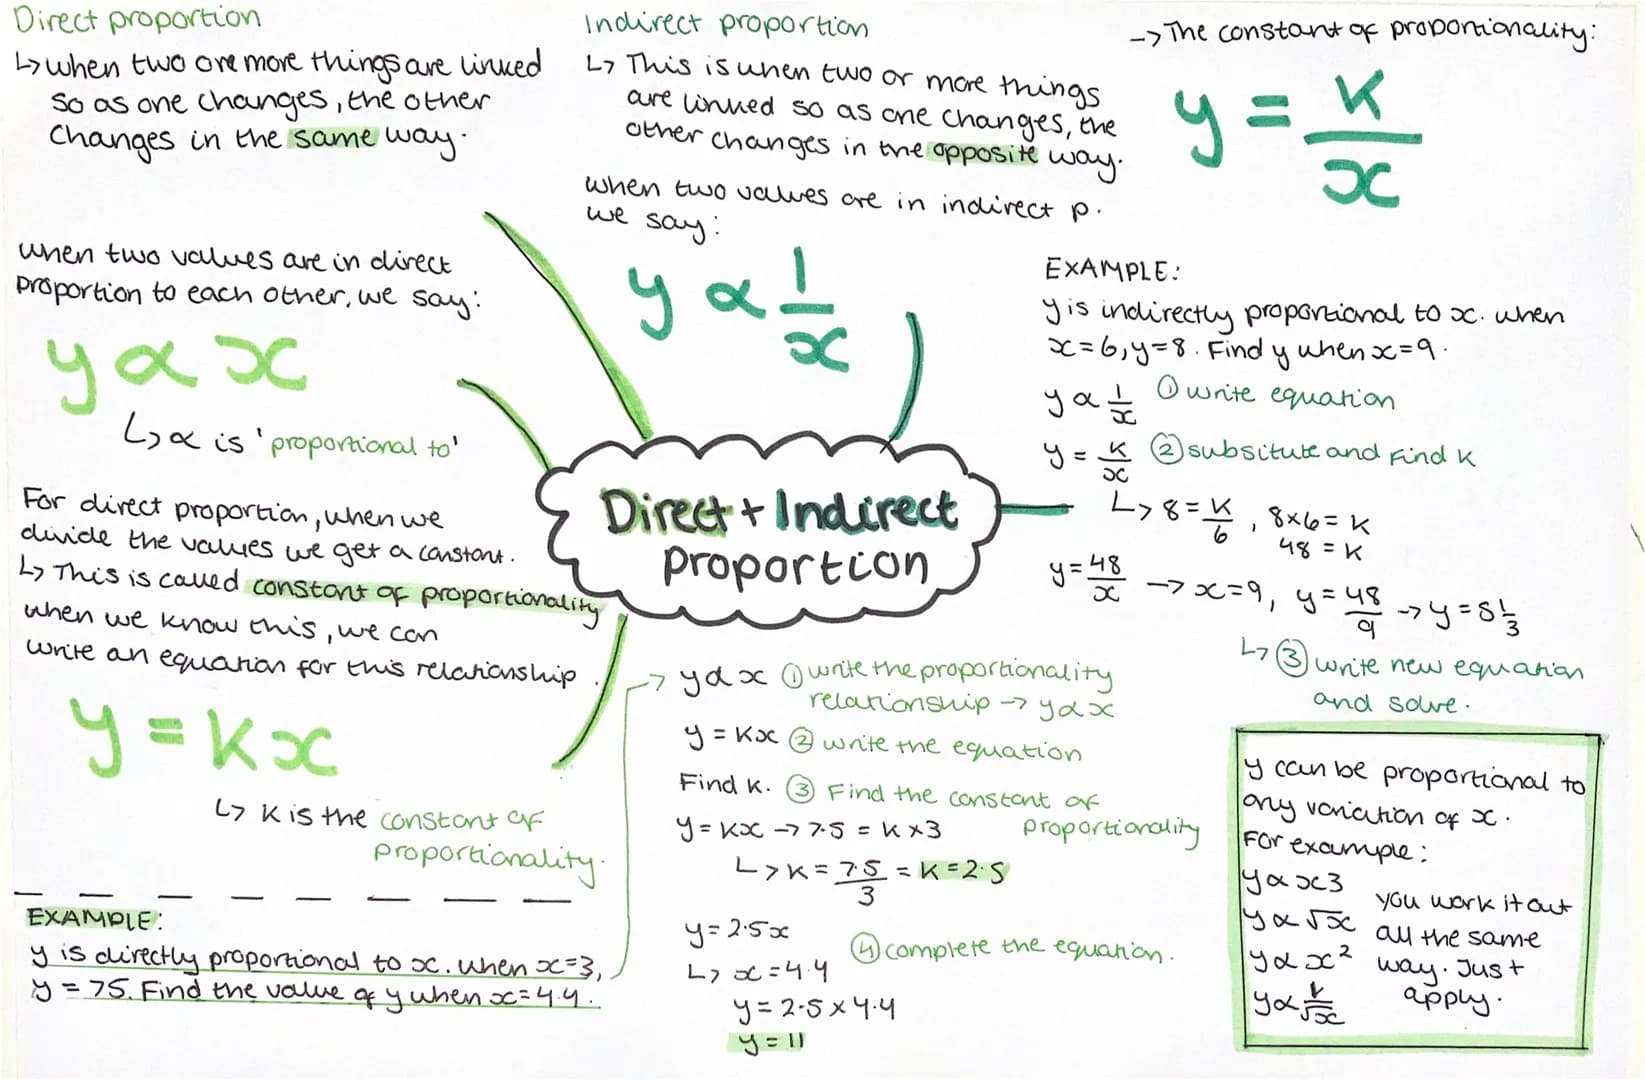 Direct proportion
↳ when two ore more things are linked
so as one changes, the other
changes in the same way.
when two values are in direct
proportion to each other, we say:
y ∝ x
↳ ∝ is 'proportional to'
For direct proportion, when we
divide the values we get a constant.
↳ This is called constant of proportionality
when we know this, we can
write an equation for this relationship.
y = Kx
↳ K is the constant of
proportionality.
EXAMPLE:
y is directly proportional to x. when x=3,
y = 75. Find the value of y when x=4.4.
Indirect proportion
↳ This is when two or more things
are linked so as one changes, the
other changes in the opposite way.
when two values are in indirect p.
we say:
y ∝ 1/x
Direct + Indirect
proportion
→ y ∝ x ① write the proportionality
relationship → y ∝ x
y = Kx ② write the equation
Find K. ③ Find the constant of
proportionality
y = Kx → 7.5 = K × 3
↳ K = 7.5/3 = K = 2.5
y = 2.5x
④ complete the equation.
↳ x = 4.4
y = 2.5 × 4.4
y = 11
→ The constant of proportionality:
y = K/x
EXAMPLE:
y is indirectly proportional to x. when
x=6, y=8. Find y when x=9.
y ∝ 1/x ① write equation
y = K/x ② subsitute and Find K
↳ 8 = K/6, 8×6 = K
48 = K
y = 48/x → x=9, y = 48/9 → y = 5 1/3
↳ ③ write new equation
and solve.
y can be proportional to
any variation of x.
For example:
y ∝ x3
y ∝ √x
y ∝ x²
y ∝ 1/√x
you work it out
all the same
way. Just
apply.